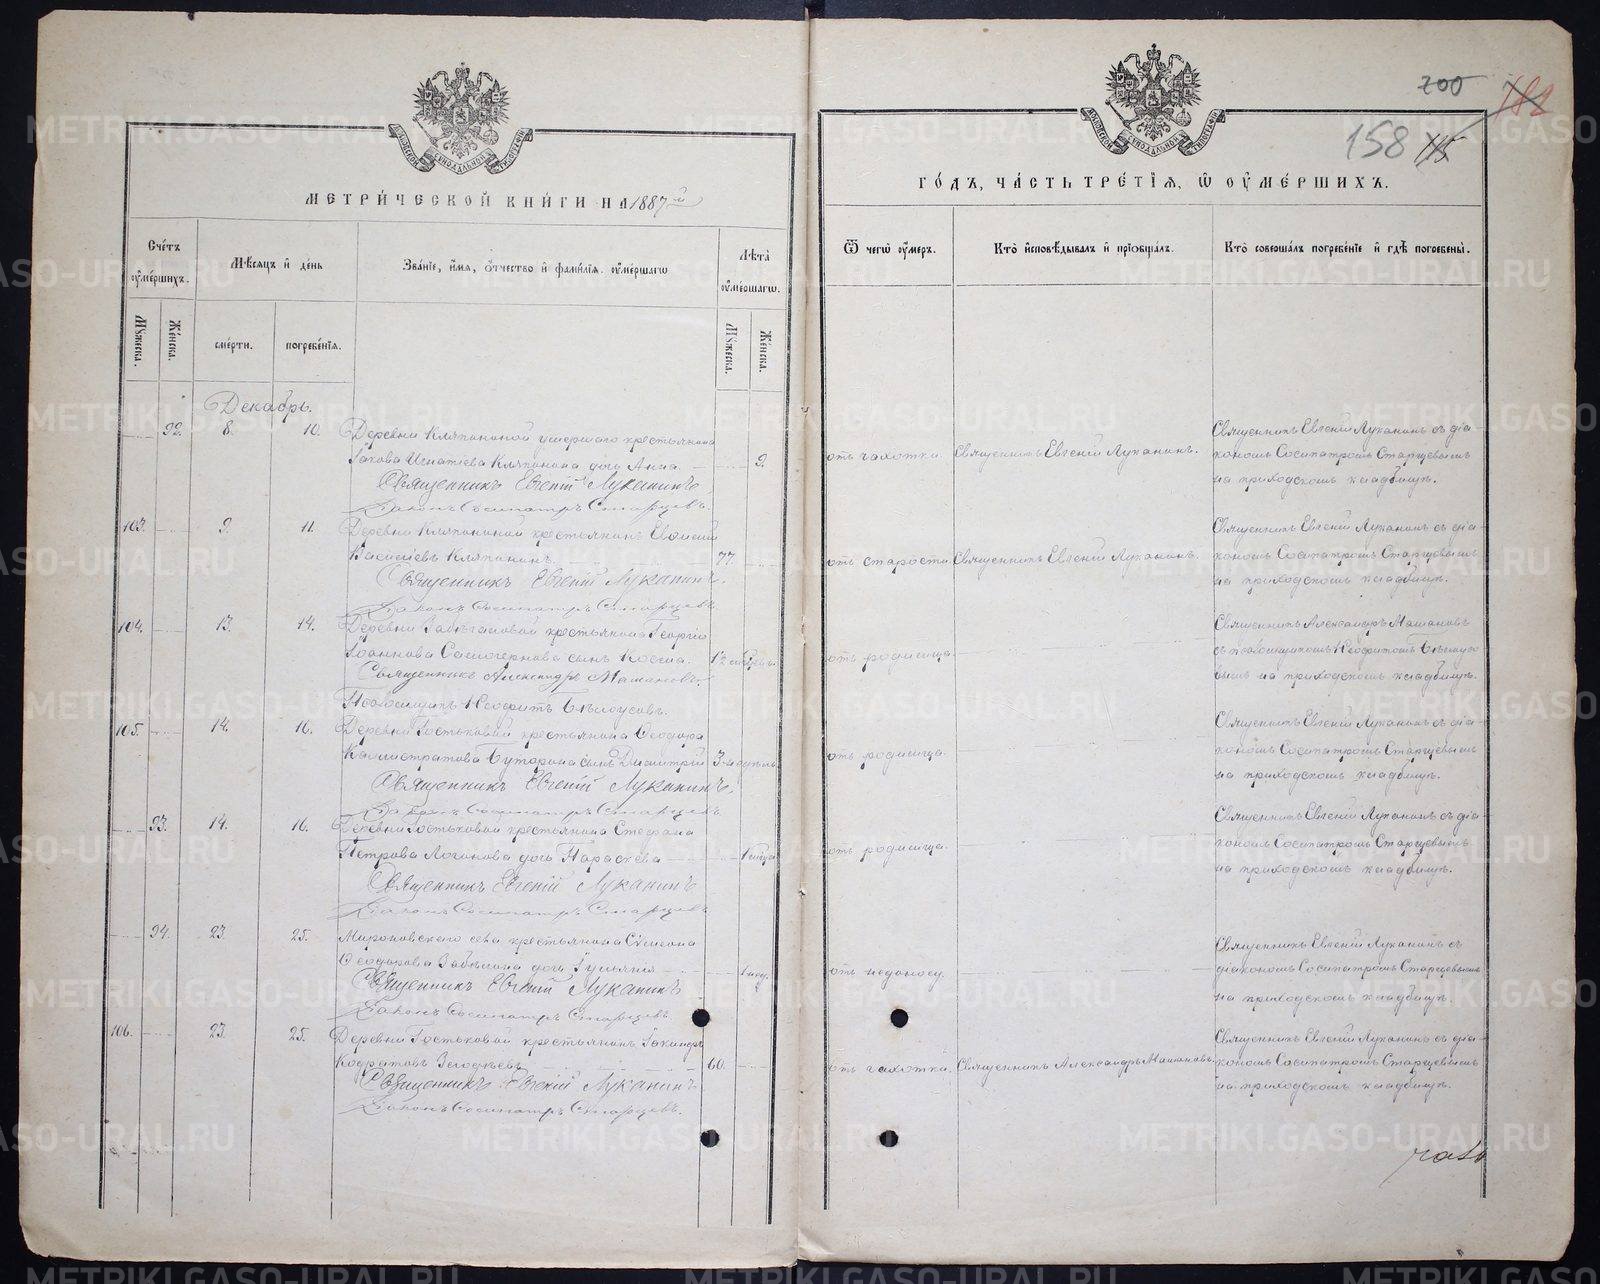 200
182
158 115
МЕТРИ́ЧЕСКОЙ КНИ́ГИ НА 1887й
ГО́ДЪ, ЧА́СТЬ ТРЕ́ТІЯ, Ѿ ОУ҆МЕ́РШИХЪ.
Сче́тъ оу҆ме́ршихъ.
Мѣсяцъ и де́нь
Зва́ніе, и҆мя, о҆тчество и фами́лія оу҆ме́ршагѡ
Лѣта̀ оу҆ме́ршагѡ.
Ѿ чегѡ̀ оу҆меръ.
Кто̀ и҆сповѣ́дывалъ и прїѡбща́лъ.
Кто̀ соверша́лъ погребе́ніе и гдѣ̀ погребены̀.
Мꙋ́жеска.
Же́нска.
сме́рти.
погребе́нія.
Мꙋ́жеска.
Же́нска.
Декабрь.
92. 8. 10. Деревни Кляпиной умершаго крестьянина
Іакова Игнатіева Кляпинина дочь Анна. 9.
Священникъ Евгеній Луканинъ
Діаконъ Сосипатръ Старцевъ.
отъ чахотки. Священникъ Евгеній Луканинъ.
Священникъ Евгеній Луканинъ съ діа-
кономъ Сосипатромъ Старцевымъ
на приходскомъ кладбищѣ.
103. 9. 11. Деревни Кляпиной крестьянинъ
Васильевъ Кляпининъ. 77.
Священникъ Евгеній Луканинъ.
Діаконъ Сосипатръ Старцевъ
отъ старости. Священникъ Евгеній Луканинъ.
Священникъ Евгеній Луканинъ съ діа-
кономъ Сосипатромъ Старцевымъ
на приходскомъ кладбищѣ.
104. 13. 14. Деревни крестьянина Георгія
Іоаннова сынъ Косма. 1½
Священникъ Александръ Машановъ.
Псаломщикъ Неофитъ Бѣлоусовъ.
отъ родимца.
Священникъ Александръ Машановъ
съ псаломщикомъ Неофитомъ Бѣлоусо-
вымъ на приходскомъ кладбищѣ.
105. 14. 16. Деревни Гостьковой крестьянина Ѳеодора
Каллистратова Буторина сынъ Димитрій 3 недѣль
Священникъ Евгеній Луканинъ.
Діаконъ Сосипатръ Старцевъ
отъ родимца.
Священникъ Евгеній Луканинъ съ діа-
кономъ Сосипатромъ Старцевымъ
на приходскомъ кладбищѣ.
93. 14. 16. Деревни Гостьковой крестьянина Стефана
Петрова дочь Параскева 1
Священникъ Евгеній Луканинъ
Діаконъ Сосипатръ Старцевъ
отъ родимца.
Священникъ Евгеній Луканинъ съ діа-
кономъ Сосипатромъ Старцевымъ
на приходскомъ кладбищѣ.
94. 23. 25. Мироновскаго села крестьянина Симеона
Ѳеодорова дочь Іуліанія 1 нед.
Священникъ Евгеній Луканинъ
Діаконъ Сосипатръ Старцевъ
отъ недоносу.
Священникъ Евгеній Луканинъ съ
діакономъ Сосипатромъ Старцевымъ
на приходскомъ кладбищѣ.
106. 23. 25. Деревни Гостьковой крестьянинъ
Кодратовъ 60.
Священникъ Евгеній Луканинъ
Діаконъ Сосипатръ Старцевъ.
отъ чахотки. Священникъ Александръ Машановъ.
Священникъ Евгеній Луканинъ съ діа-
кономъ Сосипатромъ Старцевымъ
на приходскомъ кладбищѣ.
METRIKI.GASO-URAL.RU